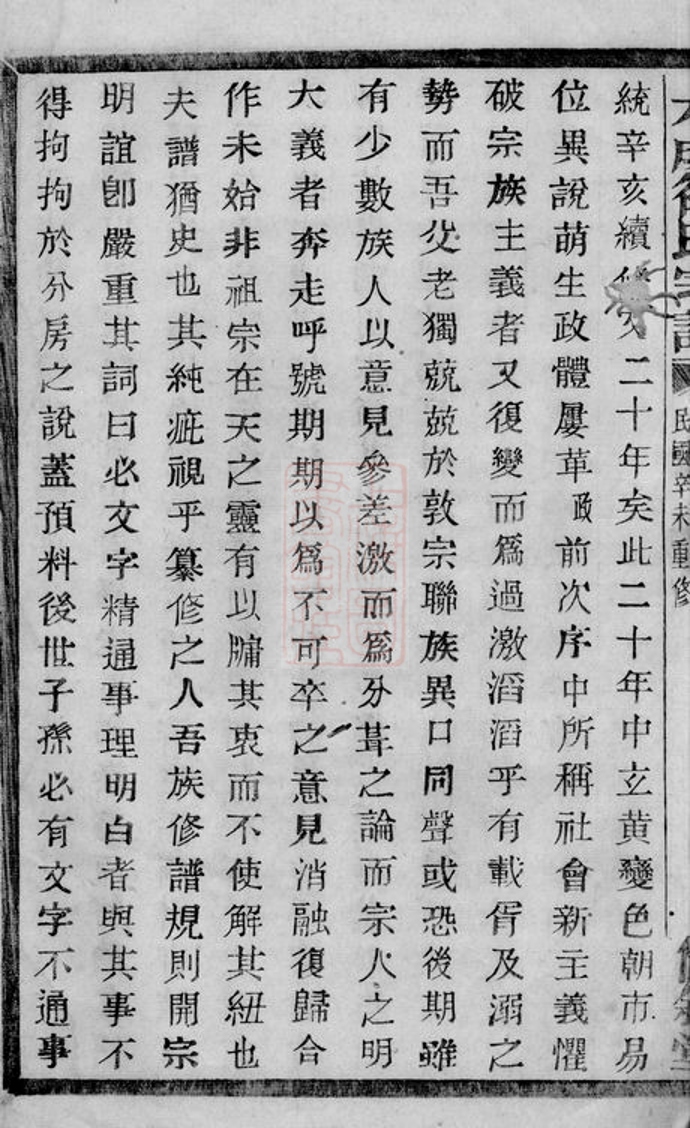 民國辛未重修
統辛亥續修又二十年矣此二十年中玄黃變色朝市易
位異說萌生政體屢革政前次序中所稱社會新主義懼
破宗族主義者又復變而爲過激滔滔乎有載胥及溺之
勢而吾父老獨兢兢於敦宗聯族異口同聲或恐後期雖
有少數族人以意見參差激而爲分葺之論而宗人之明
大義者奔走呼號期期以爲不可卒之意見消融復歸合
作未始非祖宗在天之靈有以牖其衷而不使解其紐也
夫譜猶史也其純疵視乎纂修之人吾族修譜規則開宗
明誼卽嚴重其詞曰必文字精通事理明白者與其事不
得拘拘於分房之說蓋預料後世子孫必有文字不通事